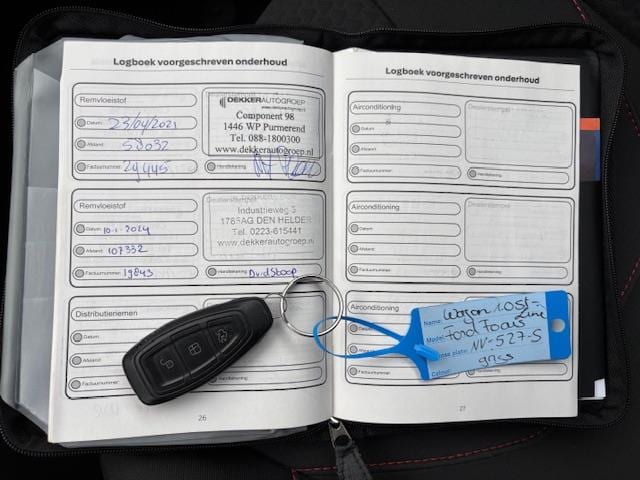 Logboek voorgeschreven onderhoud
Remvloeistof
Datum: 23/04/2021
Afstand:
Factuurnummer: 29445
DEKKERAUTOGROEP
Component 98
1446 WP Purmerend
Tel. 088-1800300
www.dekkerautogroep.nl
Handtekening:
Remvloeistof
Datum: 10-1-2024
Afstand: 107332
Factuurnummer: 19843
Industrieweg 3
1785AG DEN HELDER
Tel. 0223-615441
www.dekkerautogroep.nl
Handtekening:
Distributieriemen
Datum:
Afstand:
Factuurnummer:
26
Logboek voorgeschreven onderhoud
Airconditioning
Datum
Afstand:
Factuurnummer:
Dealerstempel
Handtekening:
Airconditioning
Datum:
Afstand:
Factuurnummer:
Dealerstempel
Handtekening:
Airconditioning
Datum
Afstand:
Factuurnummer:
Name: Wagon 1.0 ST-Line
Model: Ford Focus
plate: NV-527-S
Colour: grijs
27